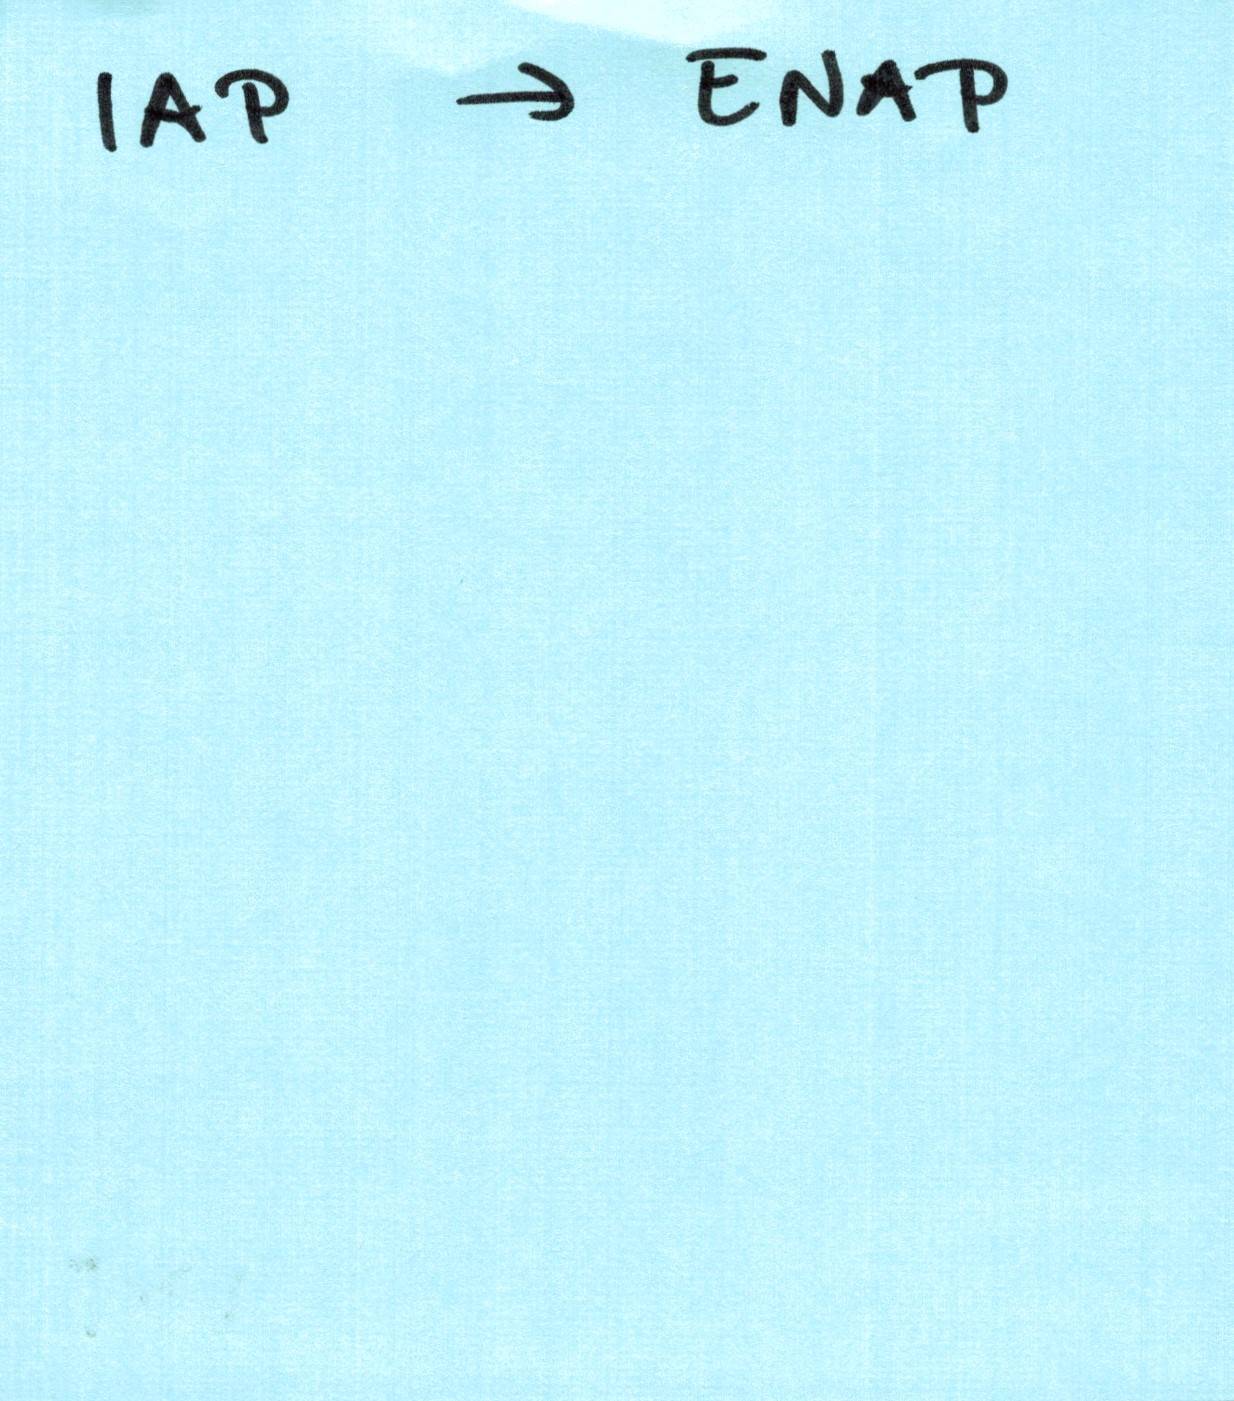 IAP → ENAP